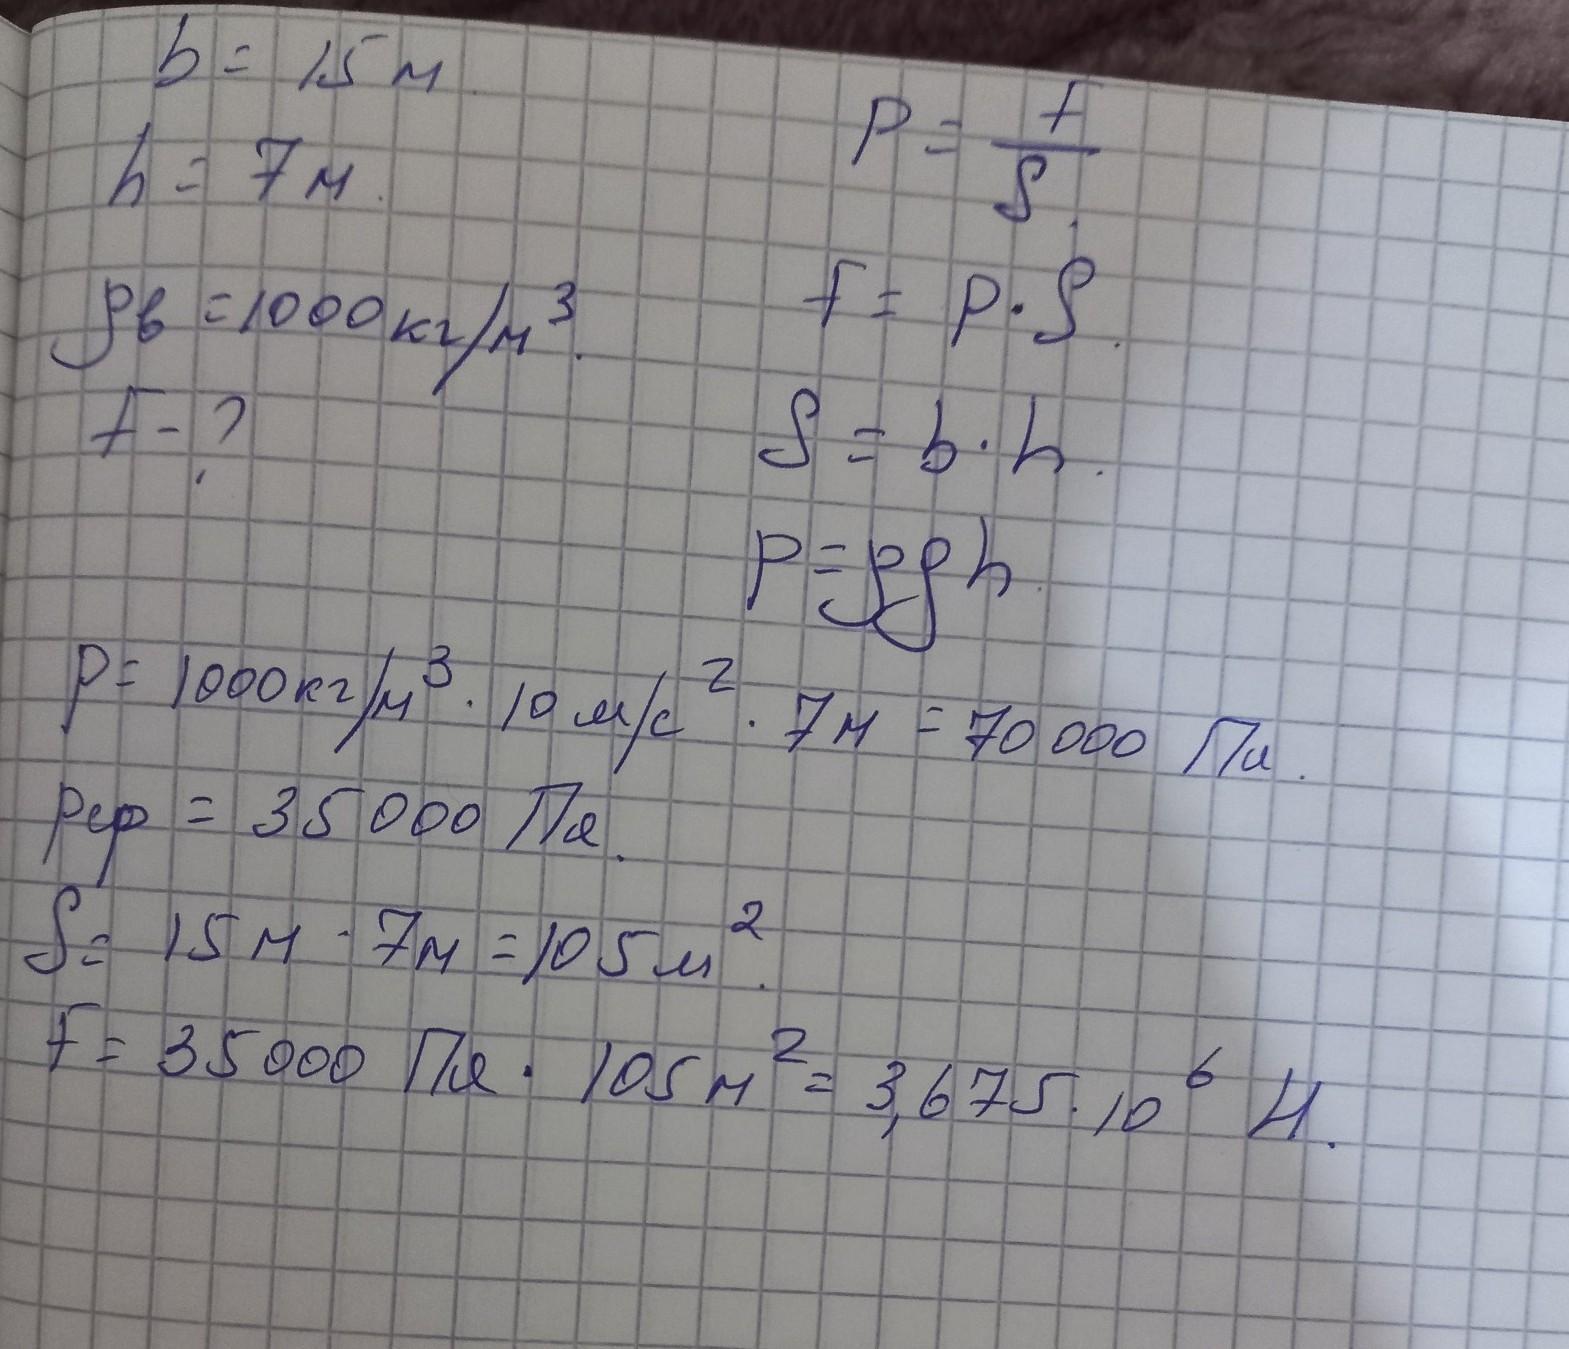 b = 15 м.
h = 7 м.
ρв = 1000 кг/м³.
F - ?
P = F/S.
F = p · S.
S = b · h.
p = ρgh.
p = 1000 кг/м³ · 10 м/с² · 7 м = 70 000 Па.
pср = 35 000 Па.
S = 15 м · 7 м = 105 м².
F = 35 000 Па · 105 м² = 3,675 · 10⁶ Н.